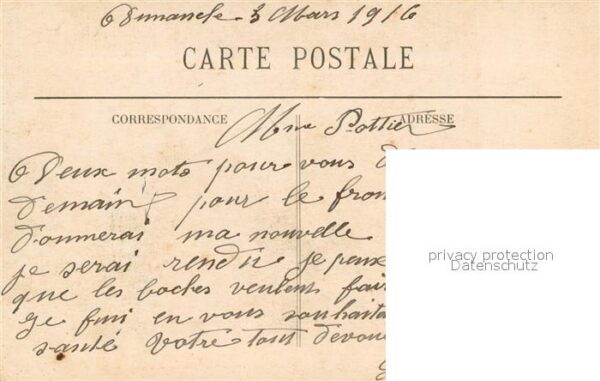 Dimanche 5 Mars 1916
CARTE POSTALE
CORRESPONDANCE
ADRESSE
Mme Pottier
Deux mots pour vous
demain pour le fron
donnerai ma nouvelle
je serai rendu je peux
que les boches veulent fair
je fini en vous souhaita
santé Votre tout dévou
privacy protection
Datenschutz